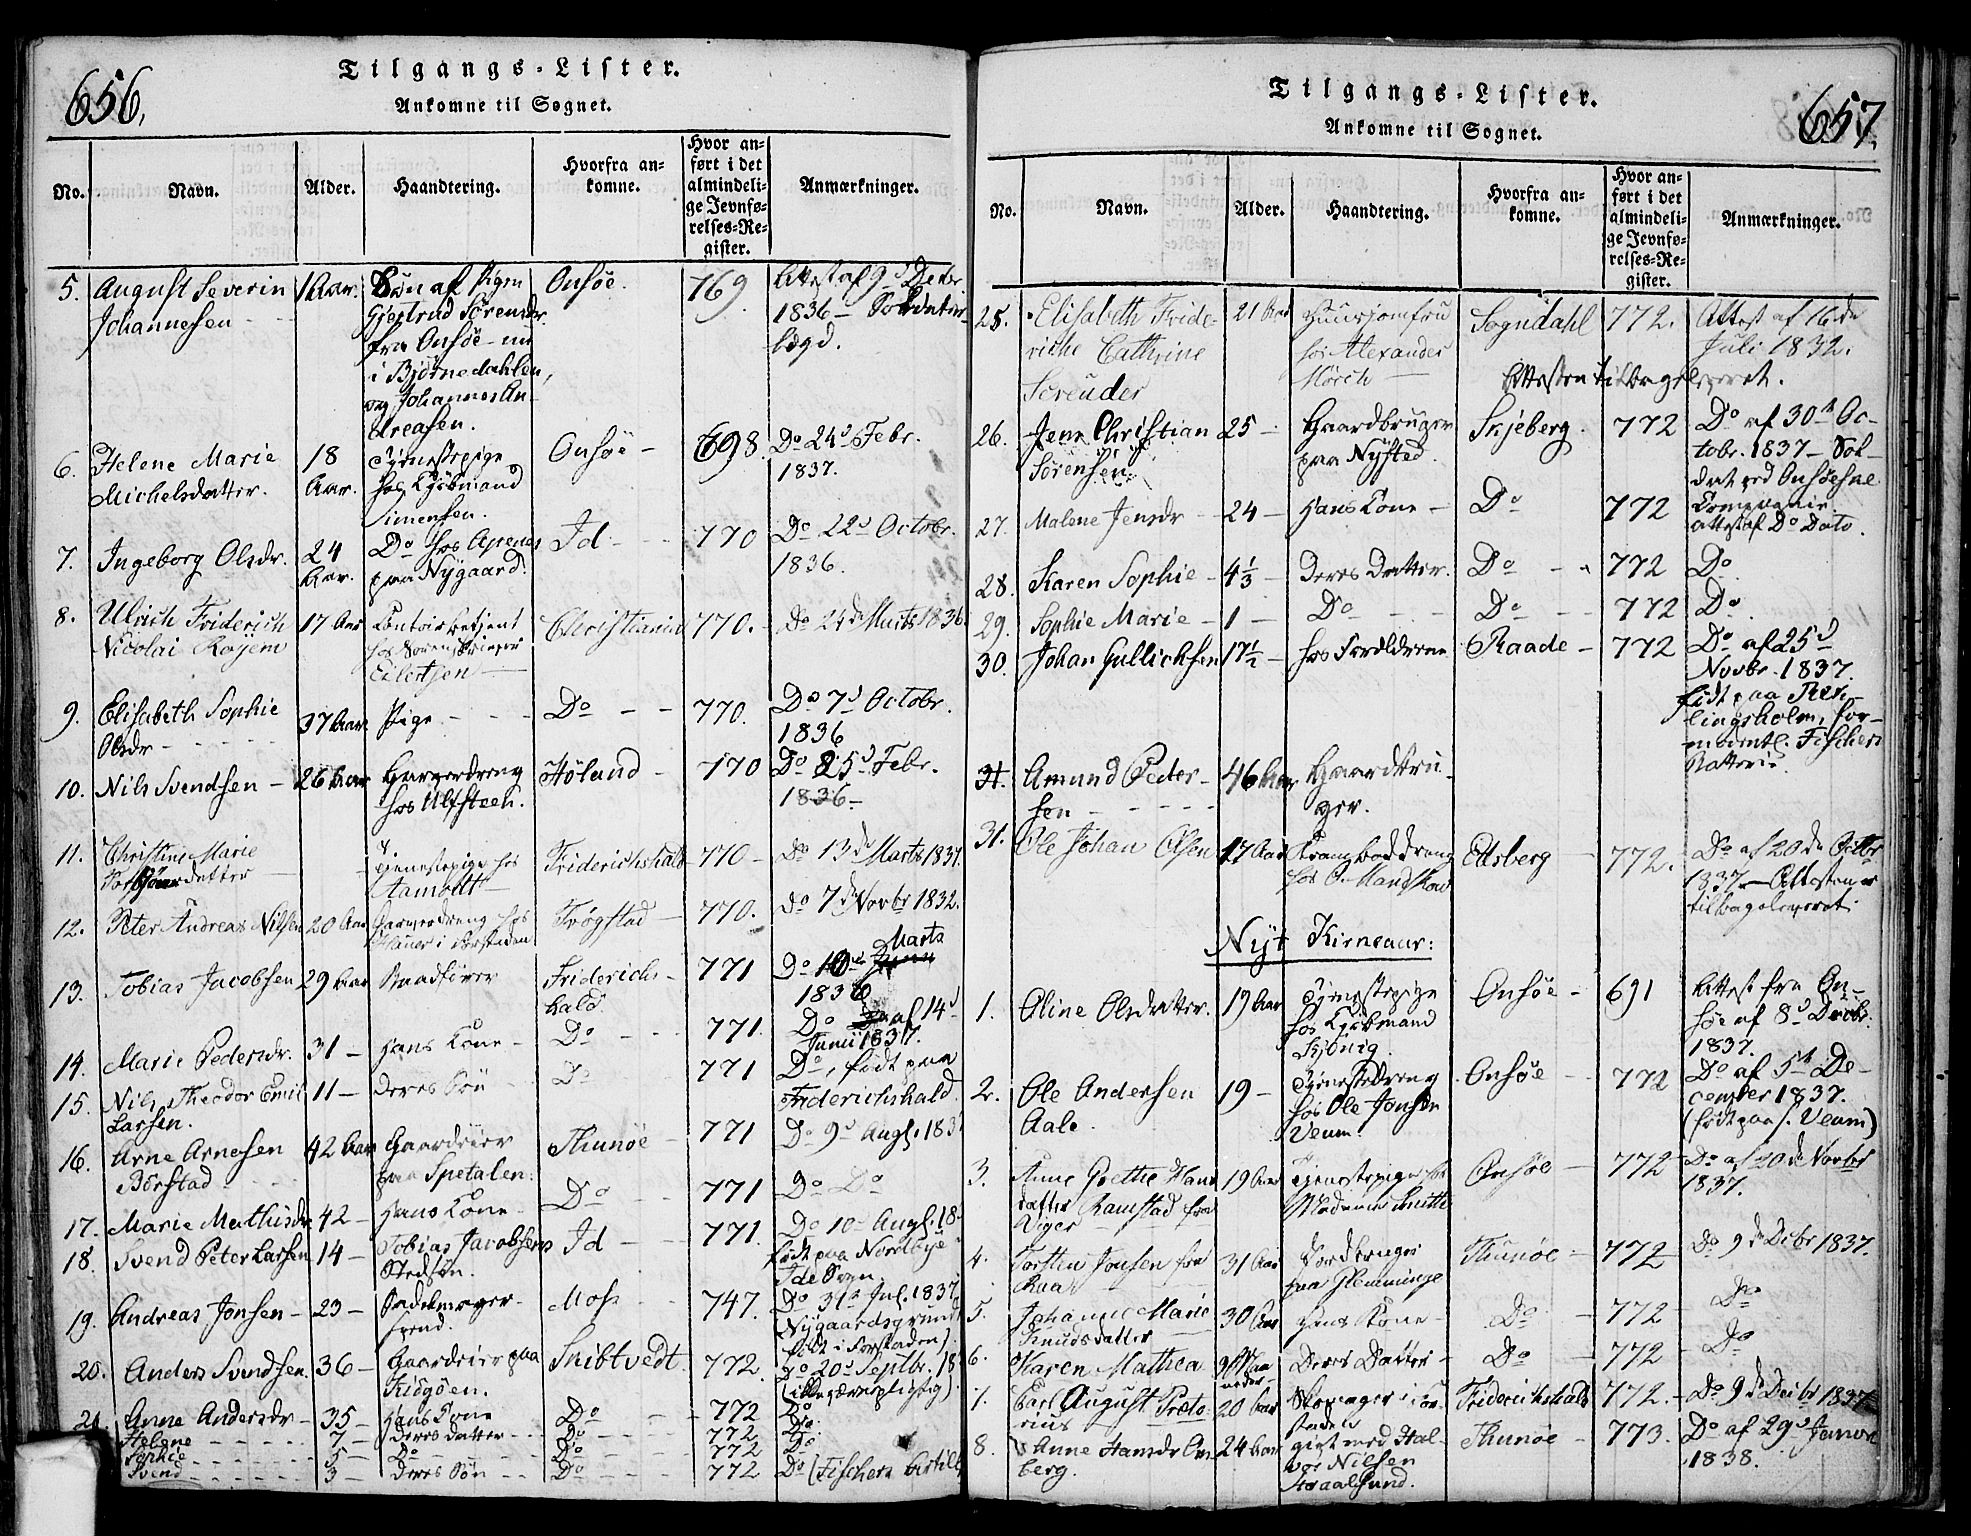 656.
Tilgangs-Lister.
Ankomne til Sognet.
No. Navn. Alder. Haandtering. Hvorfra an-komne. Hvor an-ført i det almindeli-ge Jevnfø-relses-Re-gister. Anmærkninger.
5. August Severin Johannesen 1 Aar. Søn af Pigen Gjertrud Sörensdr. fra Onsöe - nu i Bjørnedahlen, og Johannes An-dreasen. Onsöe. 769. Attest af 9d Decbr. 1836 - Soldater-lægd.
6. Helene Marie Michelsdatter. 18 Aar. Tjenestepige hos Kjöbmand Simensen. Onsöe - 698. Do 24d Febr. 1837.
7. Ingeborg Olsdr. 24 Aar. Do hos Apenes paa Nygaard. Id - 770 Do 22d Octobr. 1836.
8. Ulrich Friderich Nicolai Röyem 17 Aar Contoirbetient hos Sorenskriver Eilertsen Christiania 770. Do 24de Marts 1836.
9. Elisabeth Sophie Olsdr 37 Aar. Pige - Do - 770. Do 7d Octobr. 1836
10. Nils Svendsen - 26 Aar Garverdreng hos Ulfsteen. Höland - 770 Do 25d Febr. 1836 -
11. Christine Marie datter Tjenestepige hos Aamodt Friderichshald 770 - Do 13de Marts 1837.
12. Peter Andreas Nilsen 20 Aar Garverdreng hos i Forstaden Trögstad - 770. do 7de Novbr 1832.
13. Tobias Jacobsen 29 Aar Friderichs-hald. 771 Do 10d Marts 1836
14. Marie Pedersdr. 31 - Hans Kone - Do - 771. Do af 14d Junii 1837.
15. Nils Theodor Emil Larsen. 11 - Deres Sön Do 771 Do, födt paa Friderichshald.
16. Arne Arnesen Börstad 42 Aar Gaardeier paa Spetalen. Thunöe - 771 Do 9d Augs. 183
17. Marie Mathisdr 42 - Hans Kone - Do - 771 Do Do
18. Svend Peter Larsen 14 - Tobias Jacobsens Stedsön. Id - 771. Do 10 Augs. 18 födt paa Nordbye Ide Sogn.
19. Andreas Jonsen - 23 - Sadelmager-svend. Moss 747. Do 31te Jul. 1837 Nygaardsgrund födt i Forstaden).
20. Anders Svendsen. 36 - Gaardeier paa Snibtvedt. 772. Do 20d Septbr. 18 (ikke værnepligtig).
21. Anne Andersdr - 35 - Hans Kone Do - 772 Do
Helene - 7 - Deres datter - Do - 772 Do
Sophie - 5 - Do - Do - 772 Do
Svend - 3 - Deres Sön - Do - 772 Do (Fischers
657.
Tilgangs-Lister.
Ankomne til Sognet.
No. Navn. Alder. Haandtering. Hvorfra an-komne. Hvor an-ført i det almindeli-ge Jevnfø-relses-Re-gister. Anmærkninger.
25. Elisabeth Fride-riche Cathrine Screuder 21 Aar Huusjomfru hos Alexander Mörch Sogndahl 772. Attest af 16de Juli 1832. Attesten tilbageleveret.
26. Jens Christian Sörensen. 25 - Gaardbruger paa Nysted. Skjeberg. 772 Do af 30te Oc-tobr. 1837 - Sol-dat ved Onsöeske Compagnie.
27. Malene Jensdr - 24 - Hans Kone - Do 772 attest af Do Dato.
28. Karen Sophie - 4 1/3 - Deres Datter. Do - 772 Do
29. Sophie Marie - 1 - Do - Do - 772 Do
30. Johan Gullichsen 17 1/2 - hos Forældrene Raade - 772 Do af 25d Novbr. 1837. födt paa -lingsholm, for-modentl. Fischers Batterie.
31. Amund Peder-sen - 46 Aar Gaardbru-ger.
31. Ole Johan Olsen 17 Aar Kramboddreng hos O. Mandskow Eidsberg - 772. Do af 20de Octbr 1837 - Attesten er tilbageleveret.
Nyt Kirkeaar:
1. Oline Olsdatter. 19 Aar Tjenestepige hos Kjöbmand Kjönig. Onsöe - 691 Attest fra On-söe af 8d Decbr. 1837.
2. Ole Andersen Aale. 19 - Tjenestedreng hos Ole Jonsen Veum. Onsöe 772 Do af 5te De-cember 1837. (födt paa s. Veum)
3. Anne Grethe Hans datter Ramstad fra Viger 19 Aar Tjenestepige hos Madame Onsöe - 772 Do af 20de Novbr 1837.
4. Torsten Jonsen fra Raa 31 Aar Jordbruger paa Glemminge Thunöe - 772 Do 9de Decbr 1837.
5. Johanne Marie Knudsdatter 30 Aar Hans Kone - Do - 772 - Do
6. Karen Mathea Maa-neder - Deres Datter - Do - 772 - Do
7. Carl August Præto-rius 20 Aar Skomager i For-staden Friderichshald 772. - Do 9de Decbr 1837
8. Anne Hansdr -berg. 24 Aar gift med Hal-vor Nilsen Thunöe - 773. Do af 29d Januar 1838.